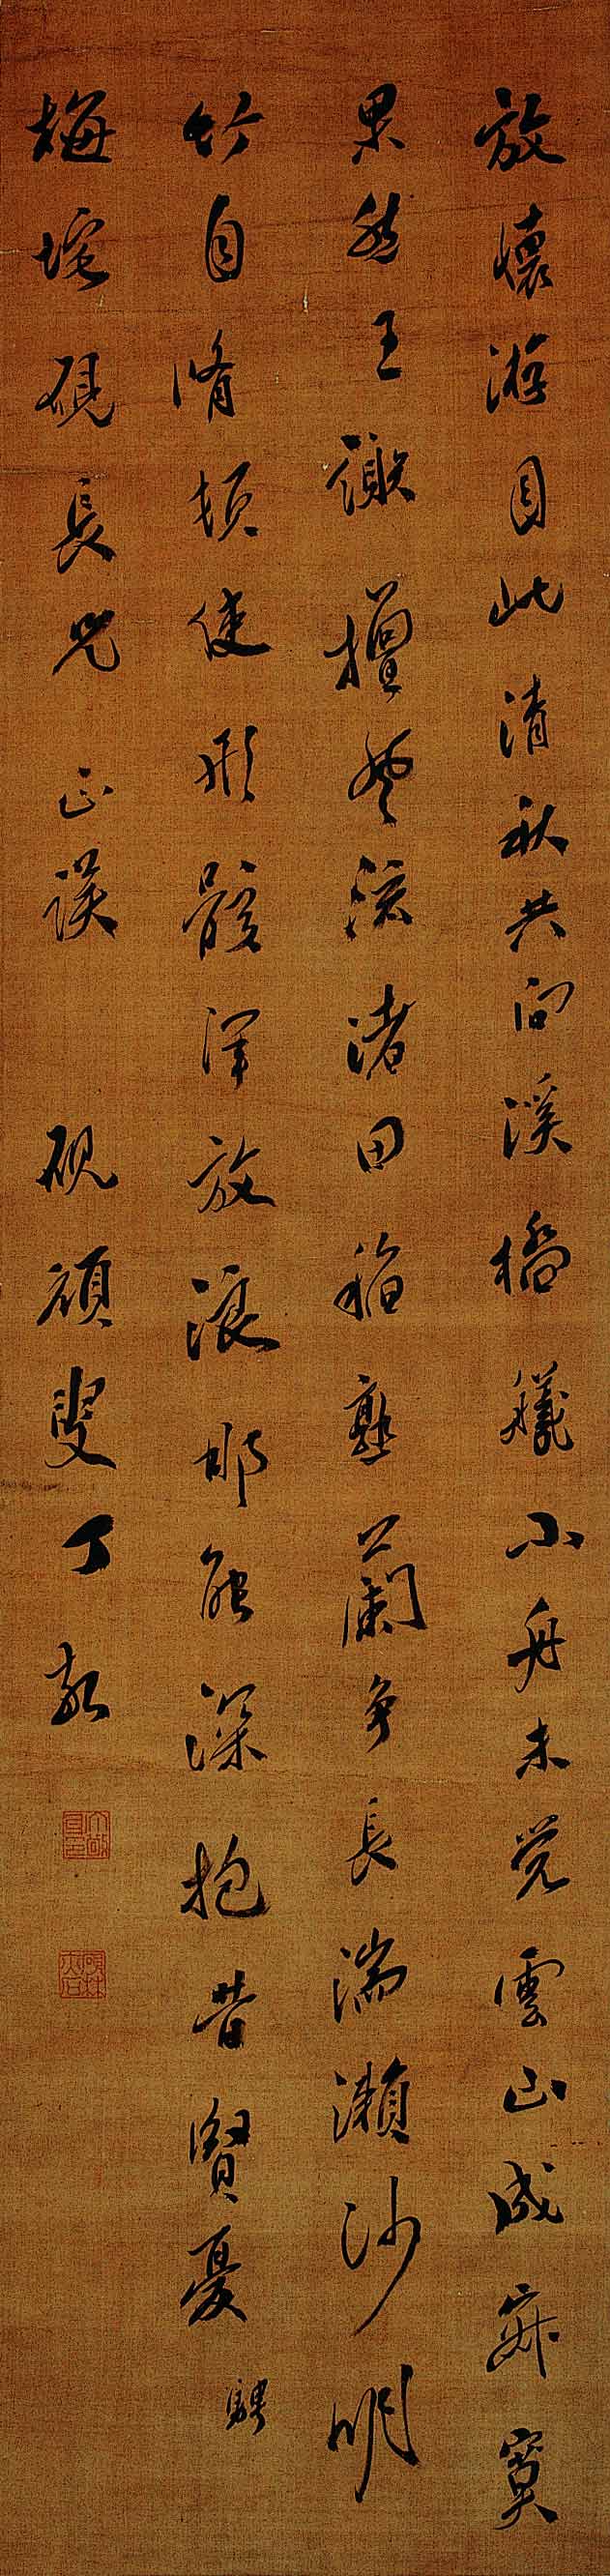 放懷游目此清秋共向溪橋艤小舟未覺雲山成寂寞
果然王謝擅風流渚田稻熟蘭爭長湍瀨沙明
竹自脩頓使形骸渾放浪那能深抱昔賢憂 騁
梅垞硯長兄 正謬 硯頑叟丁敬